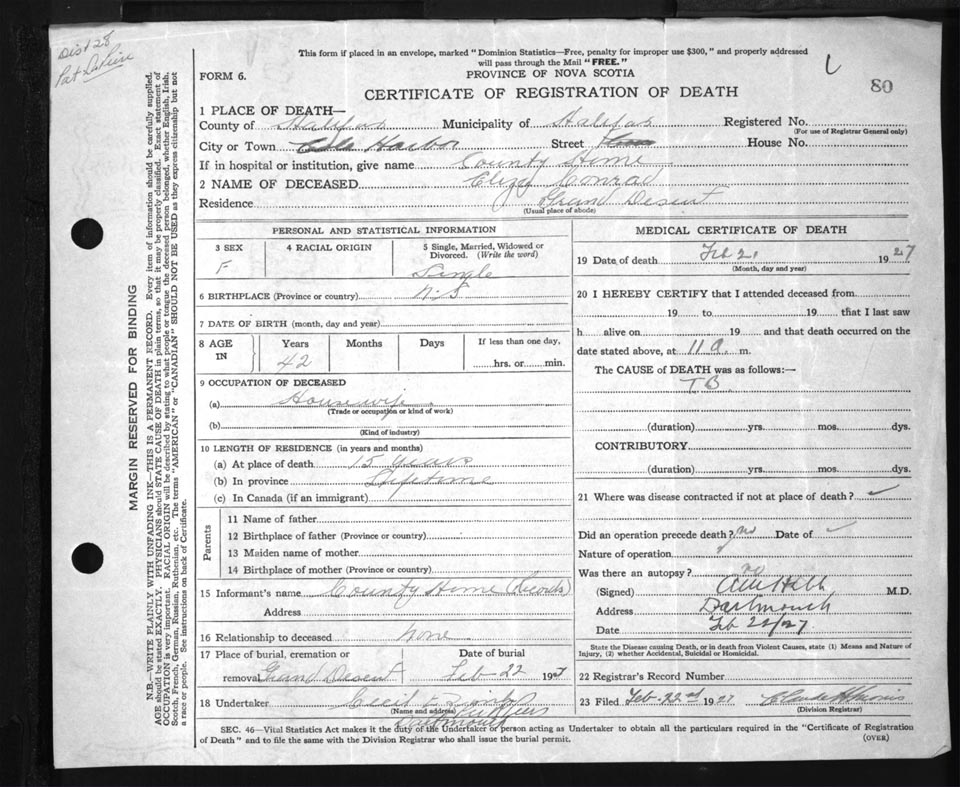 Dist 28
This form if placed in an envelope, marked "Dominion Statistics—Free, penalty for improper use $300," and properly addressed
will pass through the Mail "FREE."
PROVINCE OF NOVA SCOTIA
L
80
FORM 6.
CERTIFICATE OF REGISTRATION OF DEATH
1 PLACE OF DEATH—
County of Halifax Municipality of Halifax Registered No.
(For use of Registrar General only)
City or Town Cole Harbor Street House No.
If in hospital or institution, give name County Home
2 NAME OF DECEASED Eliza Conrad
Residence Grand Desert
(Usual place of abode)
PERSONAL AND STATISTICAL INFORMATION
3 SEX
F
4 RACIAL ORIGIN
5 Single, Married, Widowed or
Divorced. (Write the word)
Single
6 BIRTHPLACE (Province or country) N.S
7 DATE OF BIRTH (month, day and year)
8 AGE
IN
Years Months Days If less than one day,
42 hrs. or min.
9 OCCUPATION OF DECEASED
(a) Housewife
(Trade or occupation or kind of work)
(b)
(Kind of industry)
10 LENGTH OF RESIDENCE (in years and months)
(a) At place of death 15 years
(b) In province Lifetime
(c) In Canada (if an immigrant)
Parents
11 Name of father
12 Birthplace of father (Province or country)
13 Maiden name of mother
14 Birthplace of mother (Province or country)
15 Informant's name County Home (Records)
Address
16 Relationship to deceased None
17 Place of burial, cremation or Date of burial
removal Grand Desert Feb 22 1927
18 Undertaker Cecil E
(Name and address)
Dartmouth
MEDICAL CERTIFICATE OF DEATH
19 Date of death Feb 21 1927
(Month, day and year)
20 I HEREBY CERTIFY that I attended deceased from
19 to 19 that I last saw
h alive on 19 and that death occurred on the
date stated above, at 11 a. m.
The CAUSE of DEATH was as follows:—
T B
(duration) yrs. mos. dys.
CONTRIBUTORY
(duration) yrs. mos. dys.
21 Where was disease contracted if not at place of death? ✓
Did an operation precede death? no Date of ✓
Nature of operation
Was there an autopsy? no
(Signed) M.D.
Address Dartmouth
Date Feb 21/27
State the Disease causing Death, or in death from Violent Causes, state (1) Means and Nature of
Injury, (2) whether Accidental, Suicidal or Homicidal.
22 Registrar's Record Number
23 Filed Feb. 22nd 1927
(Division Registrar)
SEC. 46—Vital Statistics Act makes it the duty of the Undertaker or person acting as Undertaker to obtain all the particulars required in the "Certificate of Registration
of Death" and to file the same with the Division Registrar who shall issue the burial permit.
(OVER)
MARGIN RESERVED FOR BINDING
N.B.—WRITE PLAINLY WITH UNFADING INK—THIS IS A PERMANENT RECORD. Every item of information should be carefully supplied.
AGE should be stated EXACTLY. PHYSICIANS should STATE CAUSE OF DEATH in plain terms, so that it may be properly classified. Exact statement of
OCCUPATION is very important. RACIAL ORIGIN will be described by stating to what people or tongue the deceased person belonged, whether English, Irish,
Scotch, French, German, Russian, Ruthenian, etc. The terms "AMERICAN" or "CANADIAN" SHOULD NOT BE USED as they express citizenship but not
a race or people. See instructions on back of Certificate.